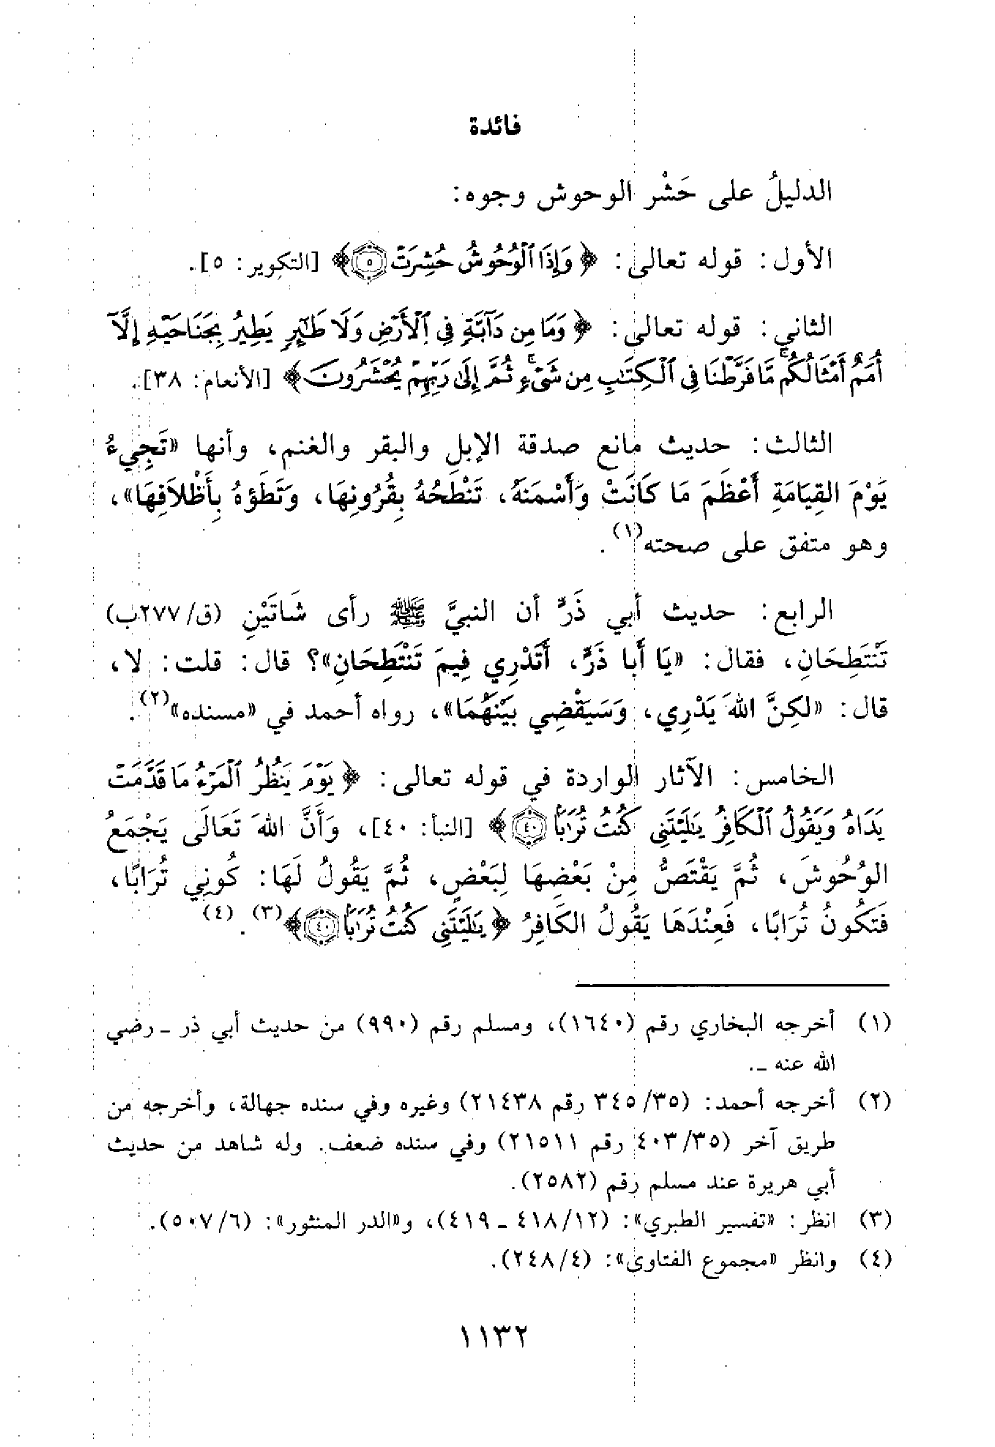 فائدة
الدليلُ على حَشْر الوحوش وجوه:
الأول: قوله تعالى: ﴿ وَإِذَا ٱلْوُحُوشُ حُشِرَتْ ۝٥﴾ [التكوير: ٥].
الثاني: قوله تعالى: ﴿ وَمَا مِن دَآبَّةٍ فِي ٱلْأَرْضِ وَلَا طَٰٓئِرٍ يَطِيرُ بِجَنَاحَيْهِ إِلَّآ
أُمَمٌ أَمْثَالُكُم ۚ مَّا فَرَّطْنَا فِي ٱلْكِتَٰبِ مِن شَيْءٍ ۚ ثُمَّ إِلَىٰ رَبِّهِمْ يُحْشَرُونَ﴾ [الأنعام: ٣٨].
الثالث: حديث مانع صدقة الإبل والبقر والغنم، وأنها «تَجِيءُ
يَوْمَ القِيَامَةِ أَعْظَمَ مَا كَانَتْ وَأَسْمَنَهُ، تَنْطَحُهُ بِقُرُونِهَا، وَتَطَؤهُ بِأَظْلاَفِهَا»،
وهو متفق على صحته(١).
الرابع: حديث أبي ذَرٍّ أن النبيَّ ﷺ رأى شَاتَيْنِ (ق/٢٧٧ب)
تَنْتَطِحَانِ، فقال: «يَا أَبا ذَرٍّ، أَتَدْرِي فِيمَ تَنْتَطِحَانِ»؟ قال: قلت: لا،
قال: «لكِنَّ اللهَ يَدْرِي، وَسَيَقْضِي بَيْنَهُمَا»، رواه أحمد في «مسنده»(٢).
الخامس: الآثار الواردة في قوله تعالى: ﴿ يَوْمَ يَنظُرُ ٱلْمَرْءُ مَا قَدَّمَتْ
يَدَاهُ وَيَقُولُ ٱلْكَافِرُ يَٰلَيْتَنِي كُنتُ تُرَٰبًا ۝٤٠﴾ [النبأ: ٤٠]، وَأَنَّ اللهَ تَعَالَى يَجْمَعُ
الوُحُوشَ، ثُمَّ يَقْتَصُّ مِنْ بَعْضِهَا لِبَعْضٍ، ثُمَّ يَقُولُ لَهَا: كُونِي تُرَابًا،
فَتَكُونُ تُرَابًا، فَعِنْدَهَا يَقُولُ الكَافِرُ ﴿ يَٰلَيْتَنِي كُنتُ تُرَٰبًا ۝٤٠﴾(٣) (٤).
(١) أخرجه البخاري رقم (١٦٤٠)، ومسلم رقم (٩٩٠) من حديث أبي ذر ـ رضي
الله عنه ـ.
(٢) أخرجه أحمد: (٣٤٥/٣٥ رقم ٢١٤٣٨) وغيره وفي سنده جهالة، وأخرجه من
طريق آخر (٤٠٣/٣٥ رقم ٢١٥١١) وفي سنده ضعف. وله شاهد من حديث
أبي هريرة عند مسلم رقم (٢٥٨٢).
(٣) انظر: «تفسير الطبري»: (٤١٨/١٢ ـ ٤١٩)، و«الدر المنثور»: (٥٠٧/٦).
(٤) وانظر «مجموع الفتاوى»: (٢٤٨/٤).
١١٣٢